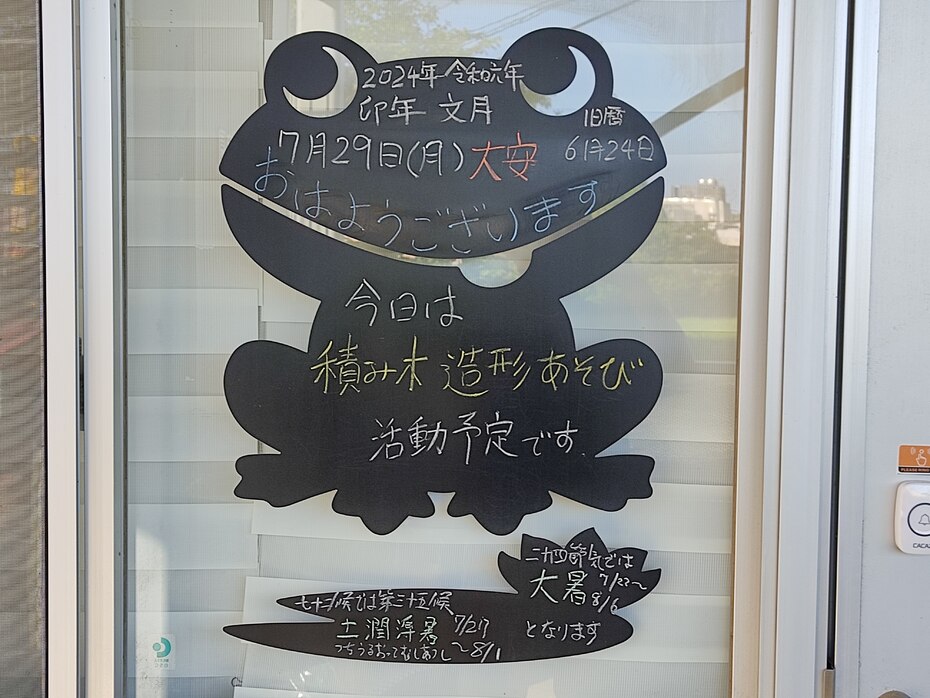 2024年 令和六年
卯年 文月
旧暦
7月29日(月) 大安 6月24日
おはようございます
今日は
積み木 造形 あそび
活動予定です.
二十四節気では
大暑 7/22〜8/6
となります
七十二候では第三十五候
土潤溽暑 7/27〜8/1
つちうるおってむしあつし
PLEASE RING